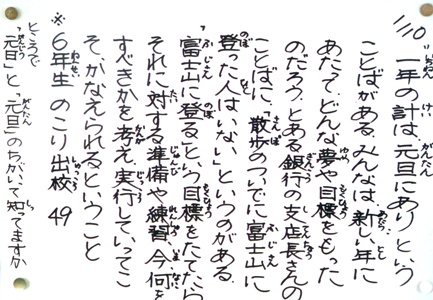 1/10 "一年の計は、元旦にあり"という
ことばがある。みんなは、新しい年に
あたって、どんな夢や目標をもった
のだろう。とある銀行の支店長さんの
ことばに、"散歩のついでに富士山に
登った人はいない"というのがある。
"富士山に登る"という目標をたてたら
それに対する準備や練習、今、何を
すべきかを考え、実行していってこ
そ、かなえられるということ
※6年生 のこり出校 49
ところで
"元日"と"元旦"のちがいて知ってますか